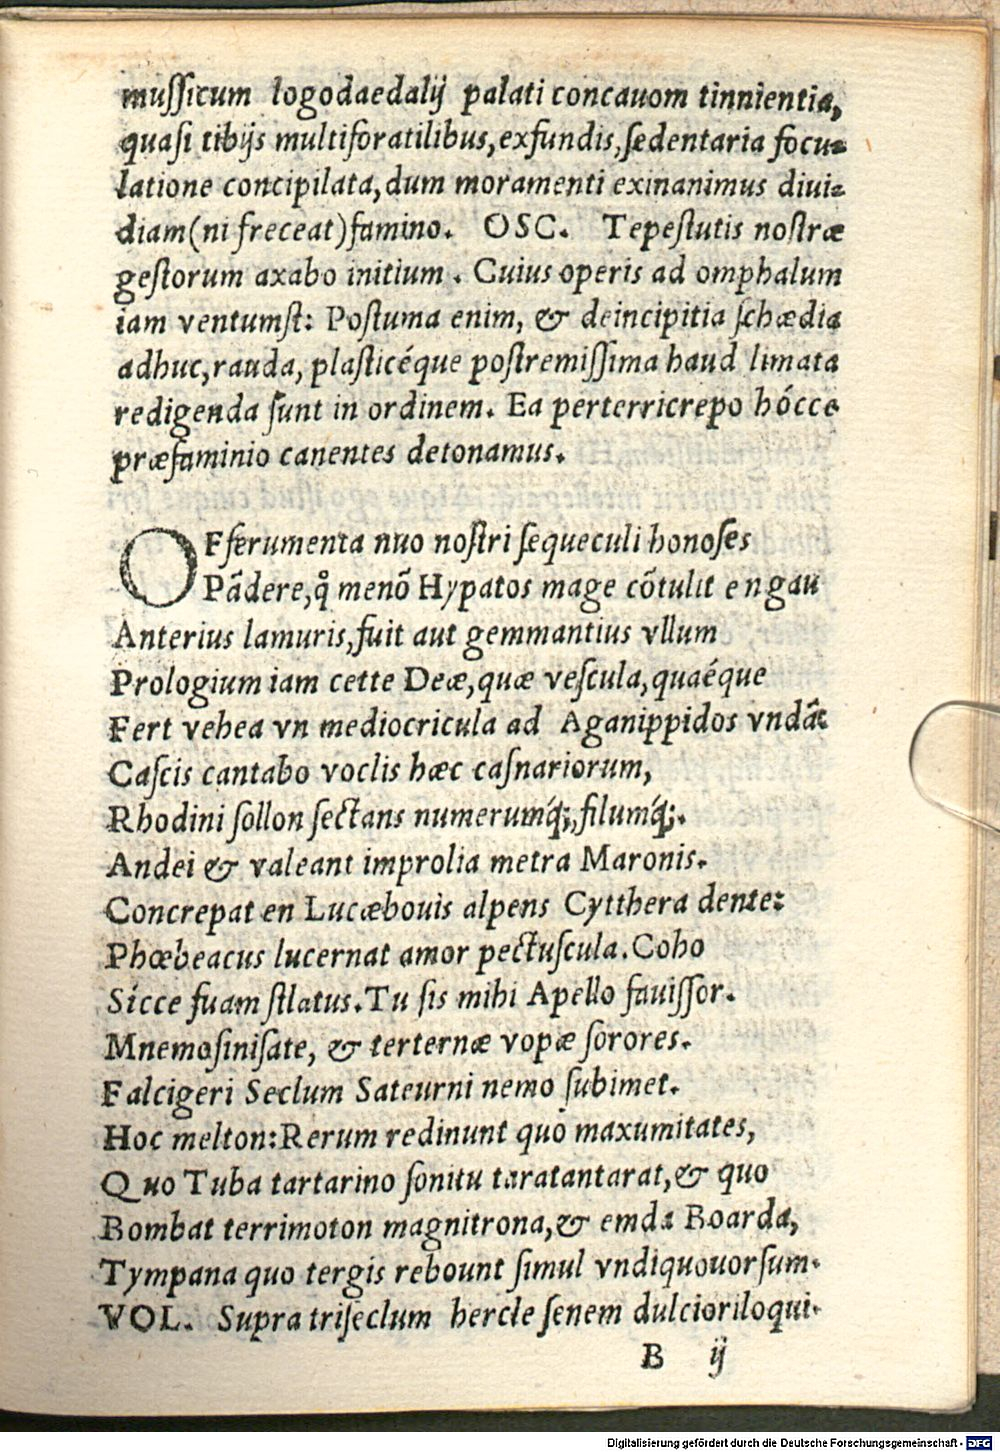 muſſicum logodaedalij palati concauom tinnientia,
quaſi tibijs multiforatilibus, exfundis, ſedentaria focu-
latione concipilata, dum moramenti exinanimus diui-
diam (ni freceat) famino. OSC. Tepeſtutis noſtræ
geſtorum axabo initium. Cuius operis ad omphalum
iam ventumſt: Poſtuma enim, & deincipitia ſchædia
adhuc, rauda, plaſticéque poſtremiſſima haud limata
redigenda ſunt in ordinem. Ea perterricrepo hócce
præfaminio canentes detonamus.
OFferumenta nuo noſtri ſequeculi honoſes
Pãdere, ꝙ menõ Hypatos mage cõtulit engau
Anterius lamuris, fuit aut gemmantius vllum
Prologium iam cette Deæ, quæ veſcula, quaéque
Fert vehea vn mediocricula ad Aganippidos vndã:
Caſcis cantabo voclis hæc caſnariorum,
Rhodini ſollon ſectans numerumq́;, filumq́;.
Andei & valeant improlia metra Maronis.
Concrepat en Lucæbouis alpens Cytthera dente:
Phœbeacus lucernat amor pectuſcula. Coho
Sicce fuam ſtlatus. Tu ſis mihi Apello fauiſſor.
Mnemoſiniſate, & terternæ vopæ ſorores.
Falcigeri Seclum Sateurni nemo ſubimet.
Hoc melton: Rerum redinunt quo maxumitates,
Quo Tuba tartarino ſonitu taratantarat, & quo
Bombat terrimoton magnitrona, & emda Boarda,
Tympana quo tergis rebount ſimul vndiquouorſum.
VOL. Supra triſeclum hercle ſenem dulcioriloqui-
B ij
Digitalisierung gefördert durch die Deutsche Forschungsgemeinschaft - DFG